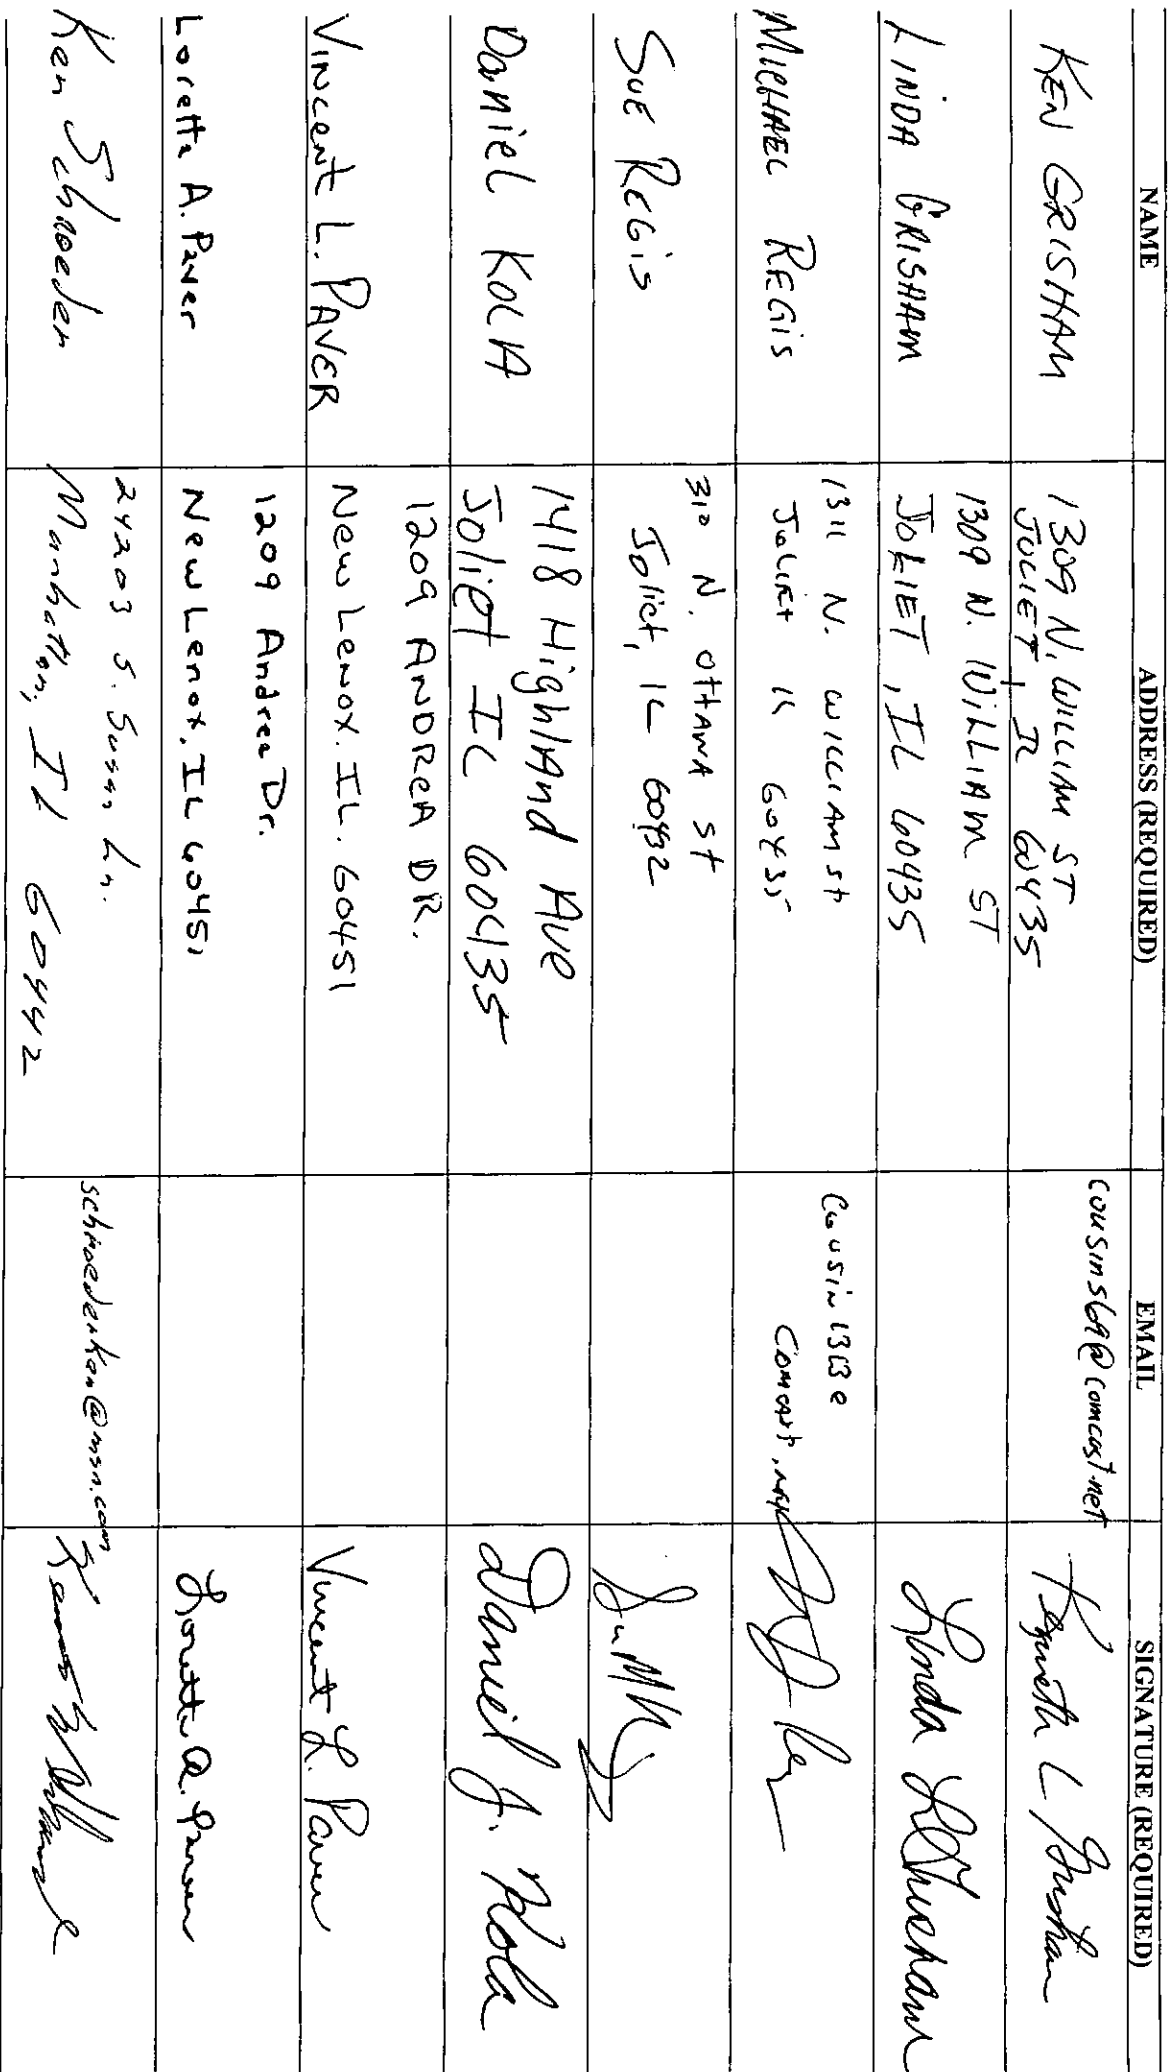 NAME ADDRESS (REQUIRED) EMAIL SIGNATURE (REQUIRED)
KEN GRISHAM
1309 N. WILLIAM ST
JOLIET, IL 60435
cousins69@comcast.net
Kenneth L Grisham
LINDA GRISHAM
1309 N. WILLIAM ST
JOLIET, IL 60435
Linda Grisham
MICHAEL REGIS
1311 N. WILLIAM st
JOLIET IL 60435
Cousin1313@
comcast.net
SUE REGIS
310 N. OTTAWA ST
Joliet, IL 60432
Daniel KOLA
1418 HighlAnd Ave
Joliet IL 60435
Daniel J. Kola
VINCENT L. PAVER
1209 ANDREA DR.
New Lenox. IL. 60451
Vincent L. Paver
Loretta A. Paver
1209 Andrea Dr.
New Lenox, IL 60451
Loretta A. Paver
Ken Schroeder
24203 S. Susan Ln.
Manhattan, IL 60442
schroederken@msn.com